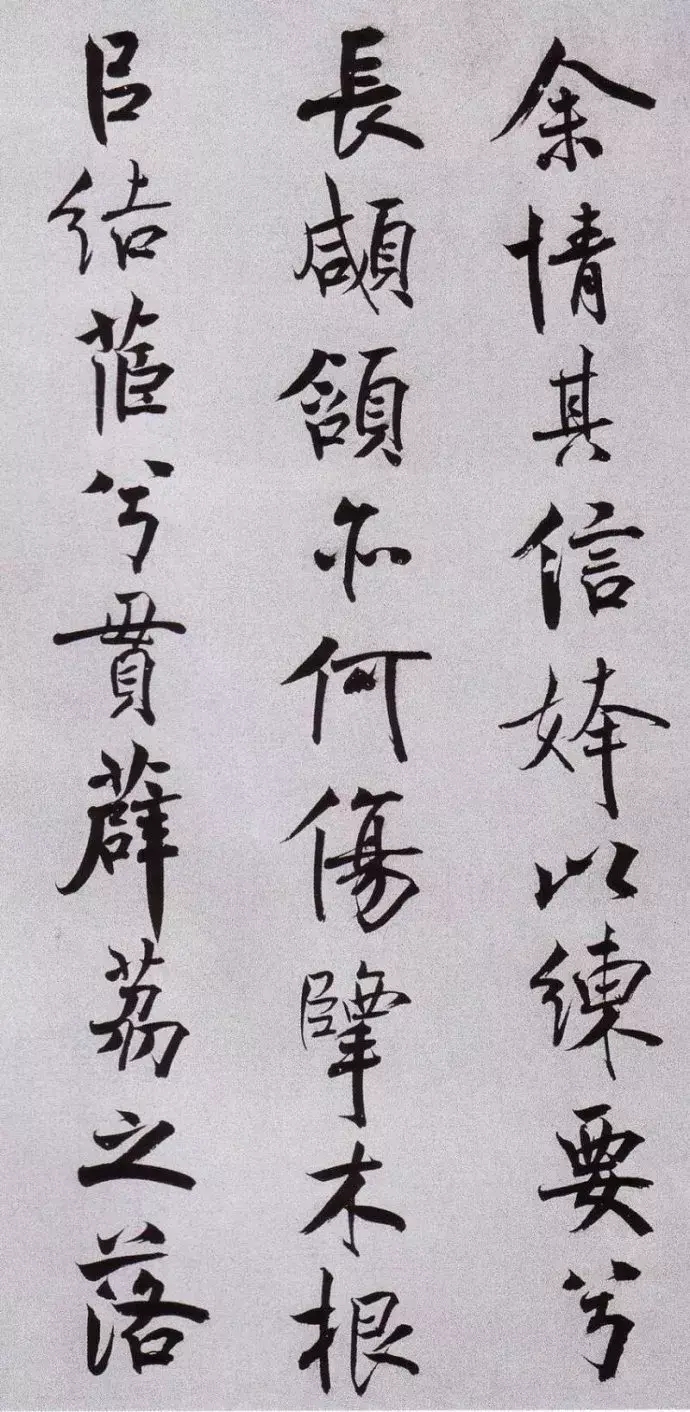 余情其信姱以練要兮
長顑頷亦何傷擥木根
㠯結茞兮貫薜荔之落